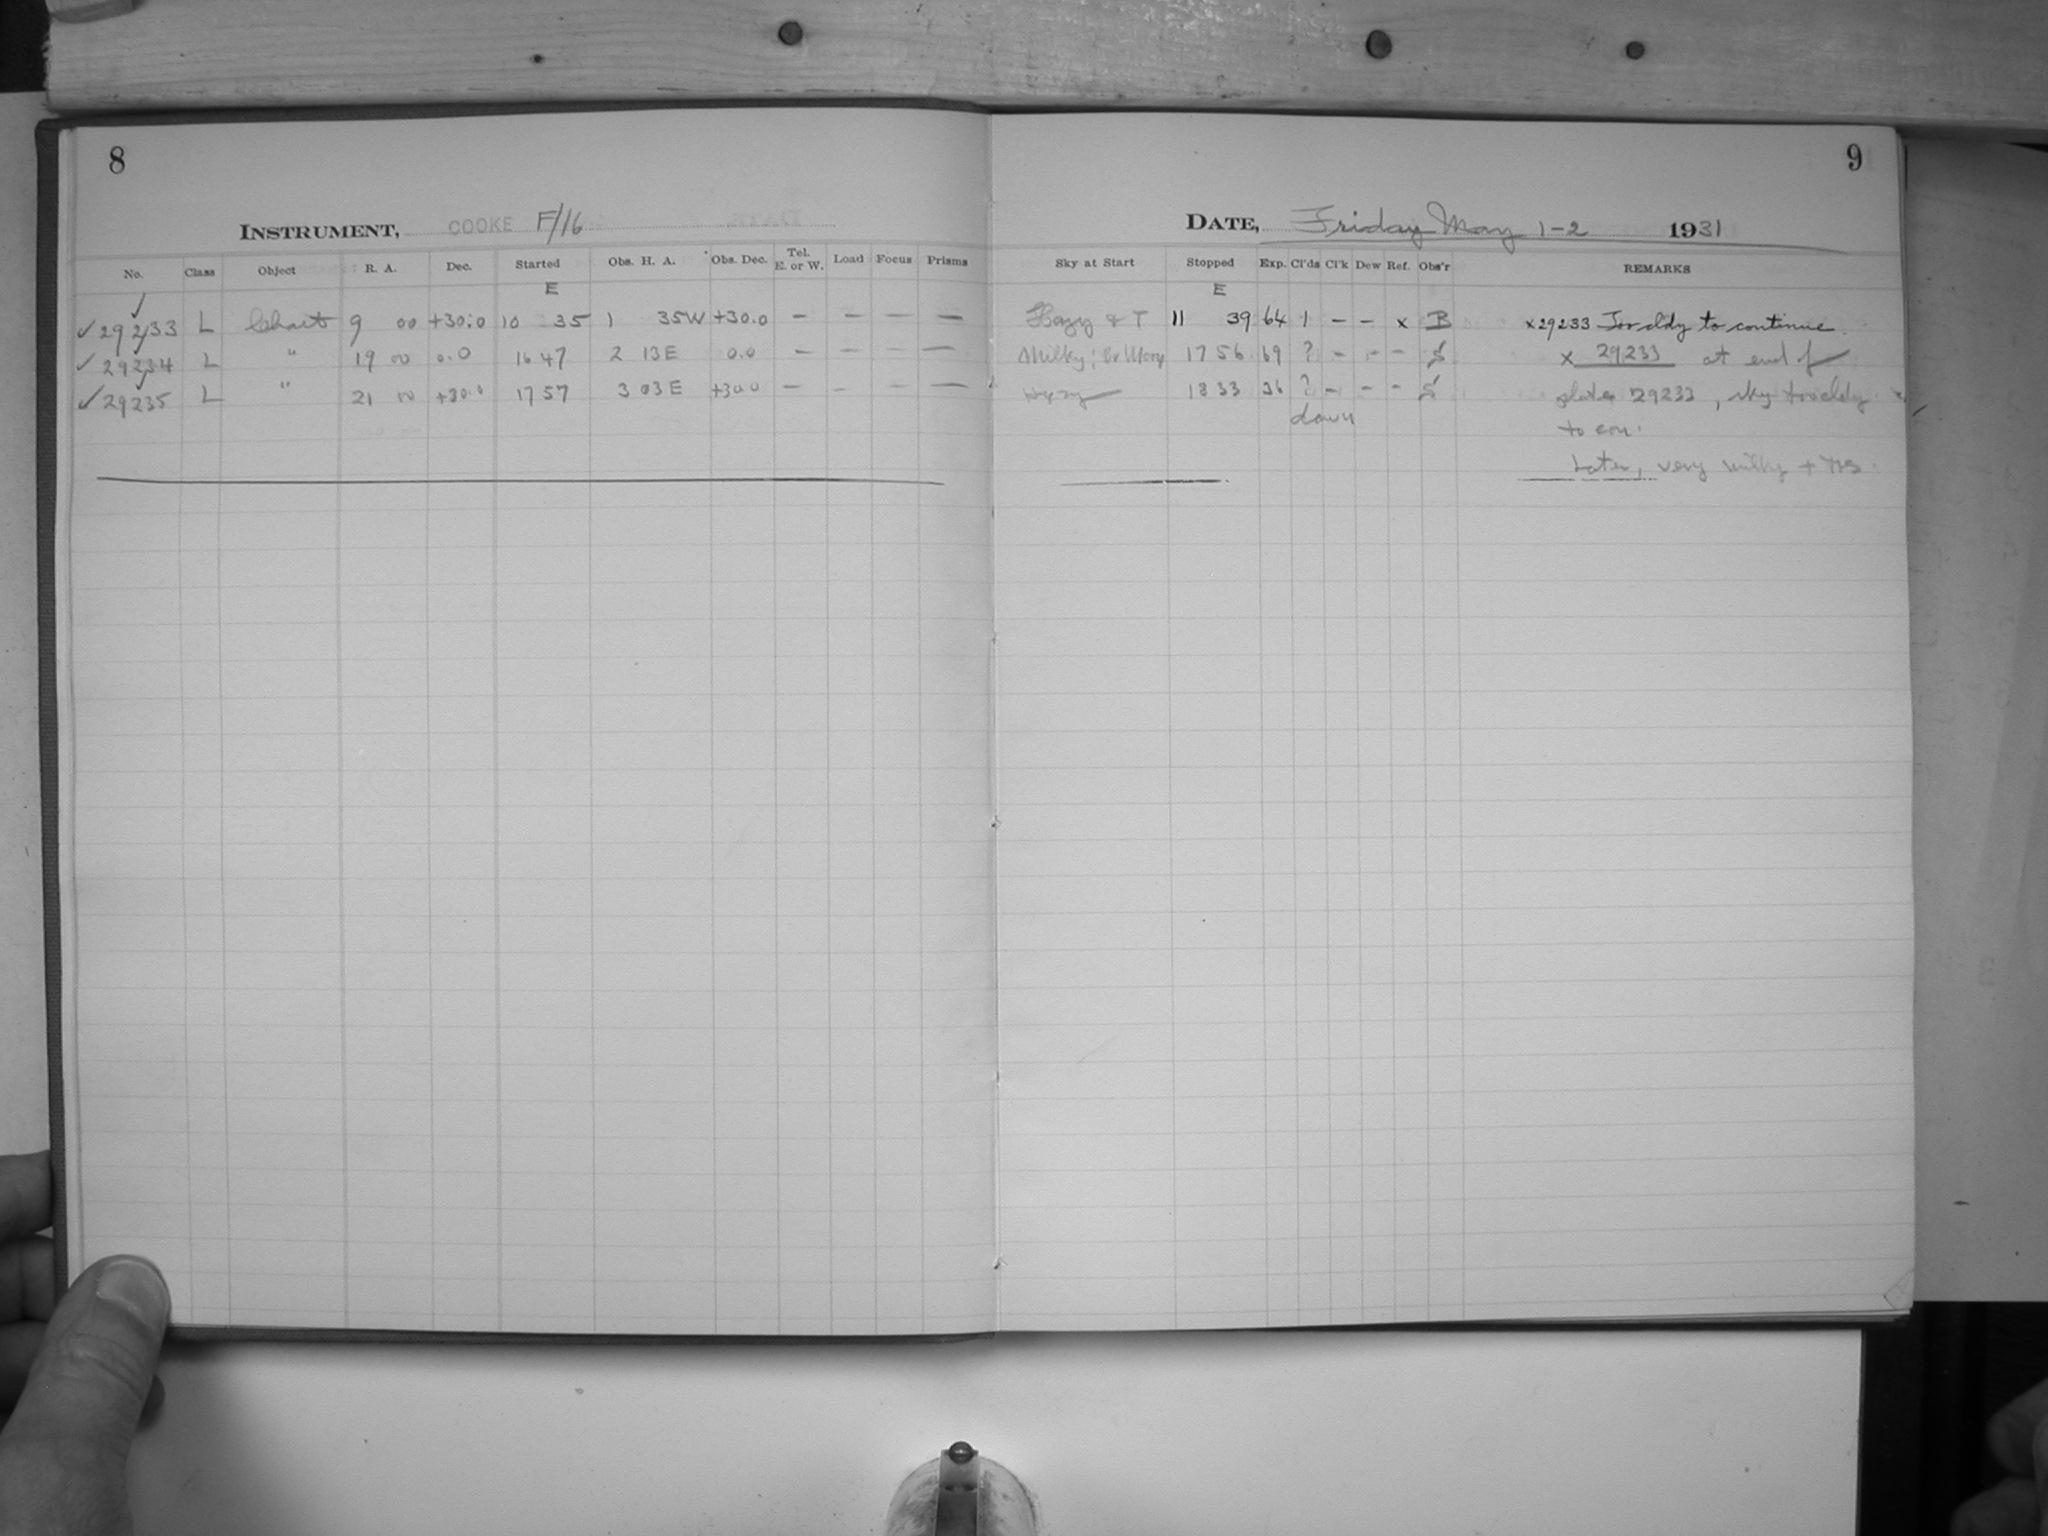 8
INSTRUMENT, COOKE F/16
No. Class Object R. A. Dec. Started Obs. H. A. Obs. Dec. Tel. E. or W. Load Focus Prisms
E
✓29233 L Chart 9 00 +30.0 10 35 1 35W +30.0 – – – –
✓29234 L " 19 00 0.0 16 47 2 13E 0.0 – – – –
✓29235 L " 21 00 +30.0 17 57 3 03E +30.0 – – – –
9
DATE, Friday May 1-2 1931
Sky at Start Stopped Exp. Cl'ds Cl'k Dew Ref. Obs'r REMARKS
E
Hazy & T 11 39 64 1 – – x B x29233 Too cldy to continue.
Milky; 17 56 69 ? – – – x 29233 at end of
18 33 36 ? – – – plate 29233, sky too cldy
dawn to con.
Later, very milky +